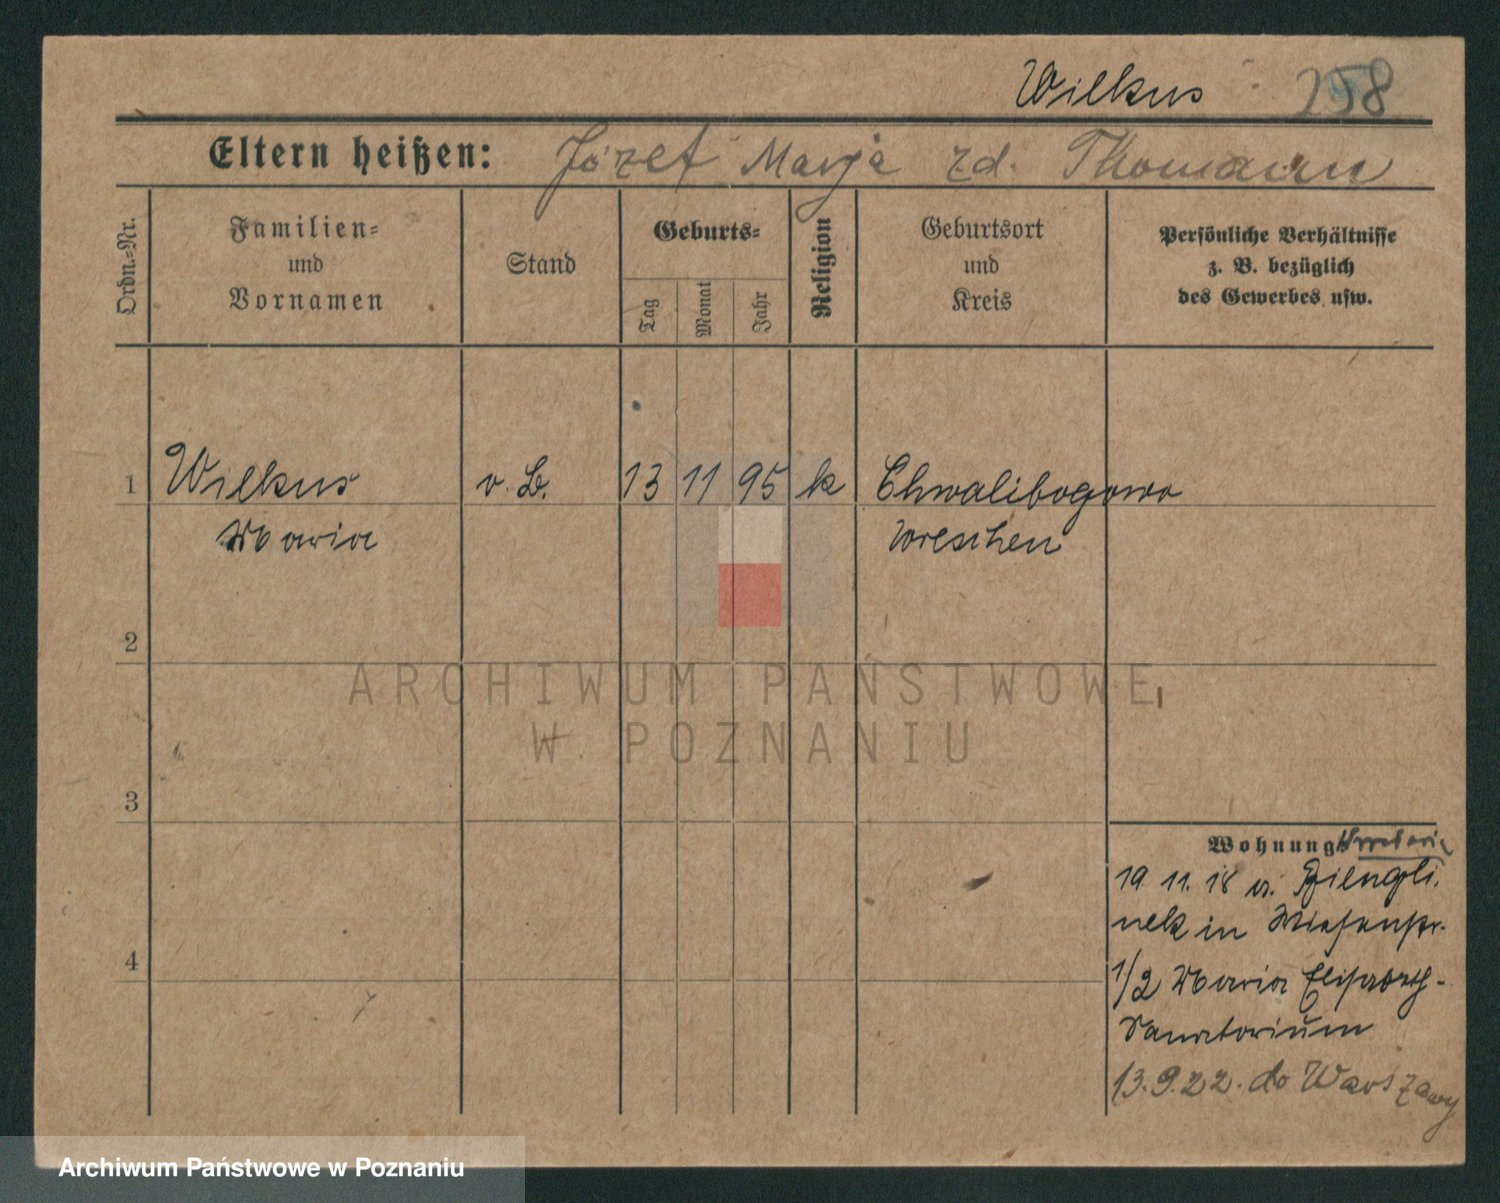 Wilkus 258
Eltern heißen: Józef Marja zd. Thomann
Ordn.-Nr.
Familien-
und
Vornamen
Stand
Geburts-
Tag
Monat
Jahr
Religion
Geburtsort
und
Kreis
Persönliche Verhältnisse
z. B. bezüglich
des Gewerbes usw.
1 Wilkus v. B. 13 11 95 k Chwalibogowo
Maria Wreschen
2
ARCHIWUM PAŃSTWOWE
W POZNANIU
3
Wohnung
19 11. 18 v.
nek in Wiesenstr.
1/2 Maria Elisabeth-
Sanatorium
13.9.22. do Warszawy
4
Archiwum Państwowe w Poznaniu